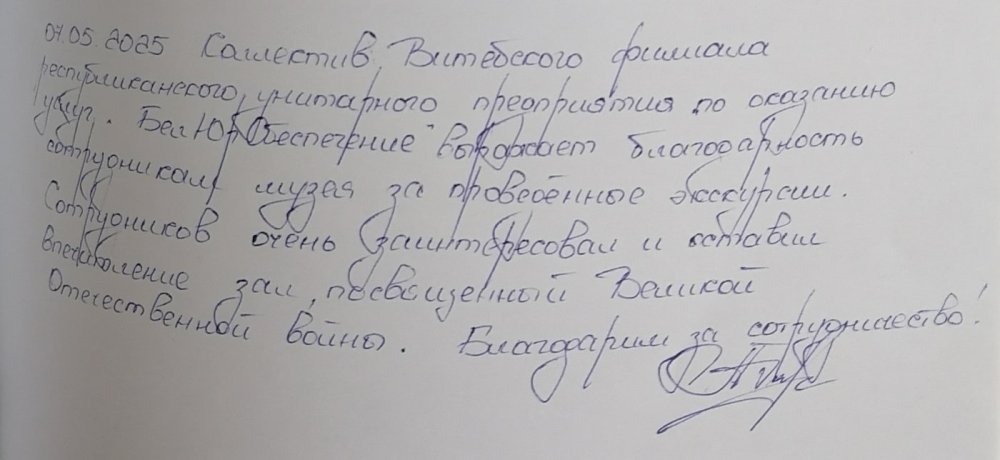 07.05.2025 Коллектив Витебского филиала
республиканского унитарного предприятия по оказанию
услуг. БелЮрОбеспечение" выражает благодарность
сотрудникам музея за проведённые экскурсии.
Сотрудников очень заинтересовал и оставил
впечатление зал, посвященный Великой
Отечественной войны. Благодарим за сотрудничество!